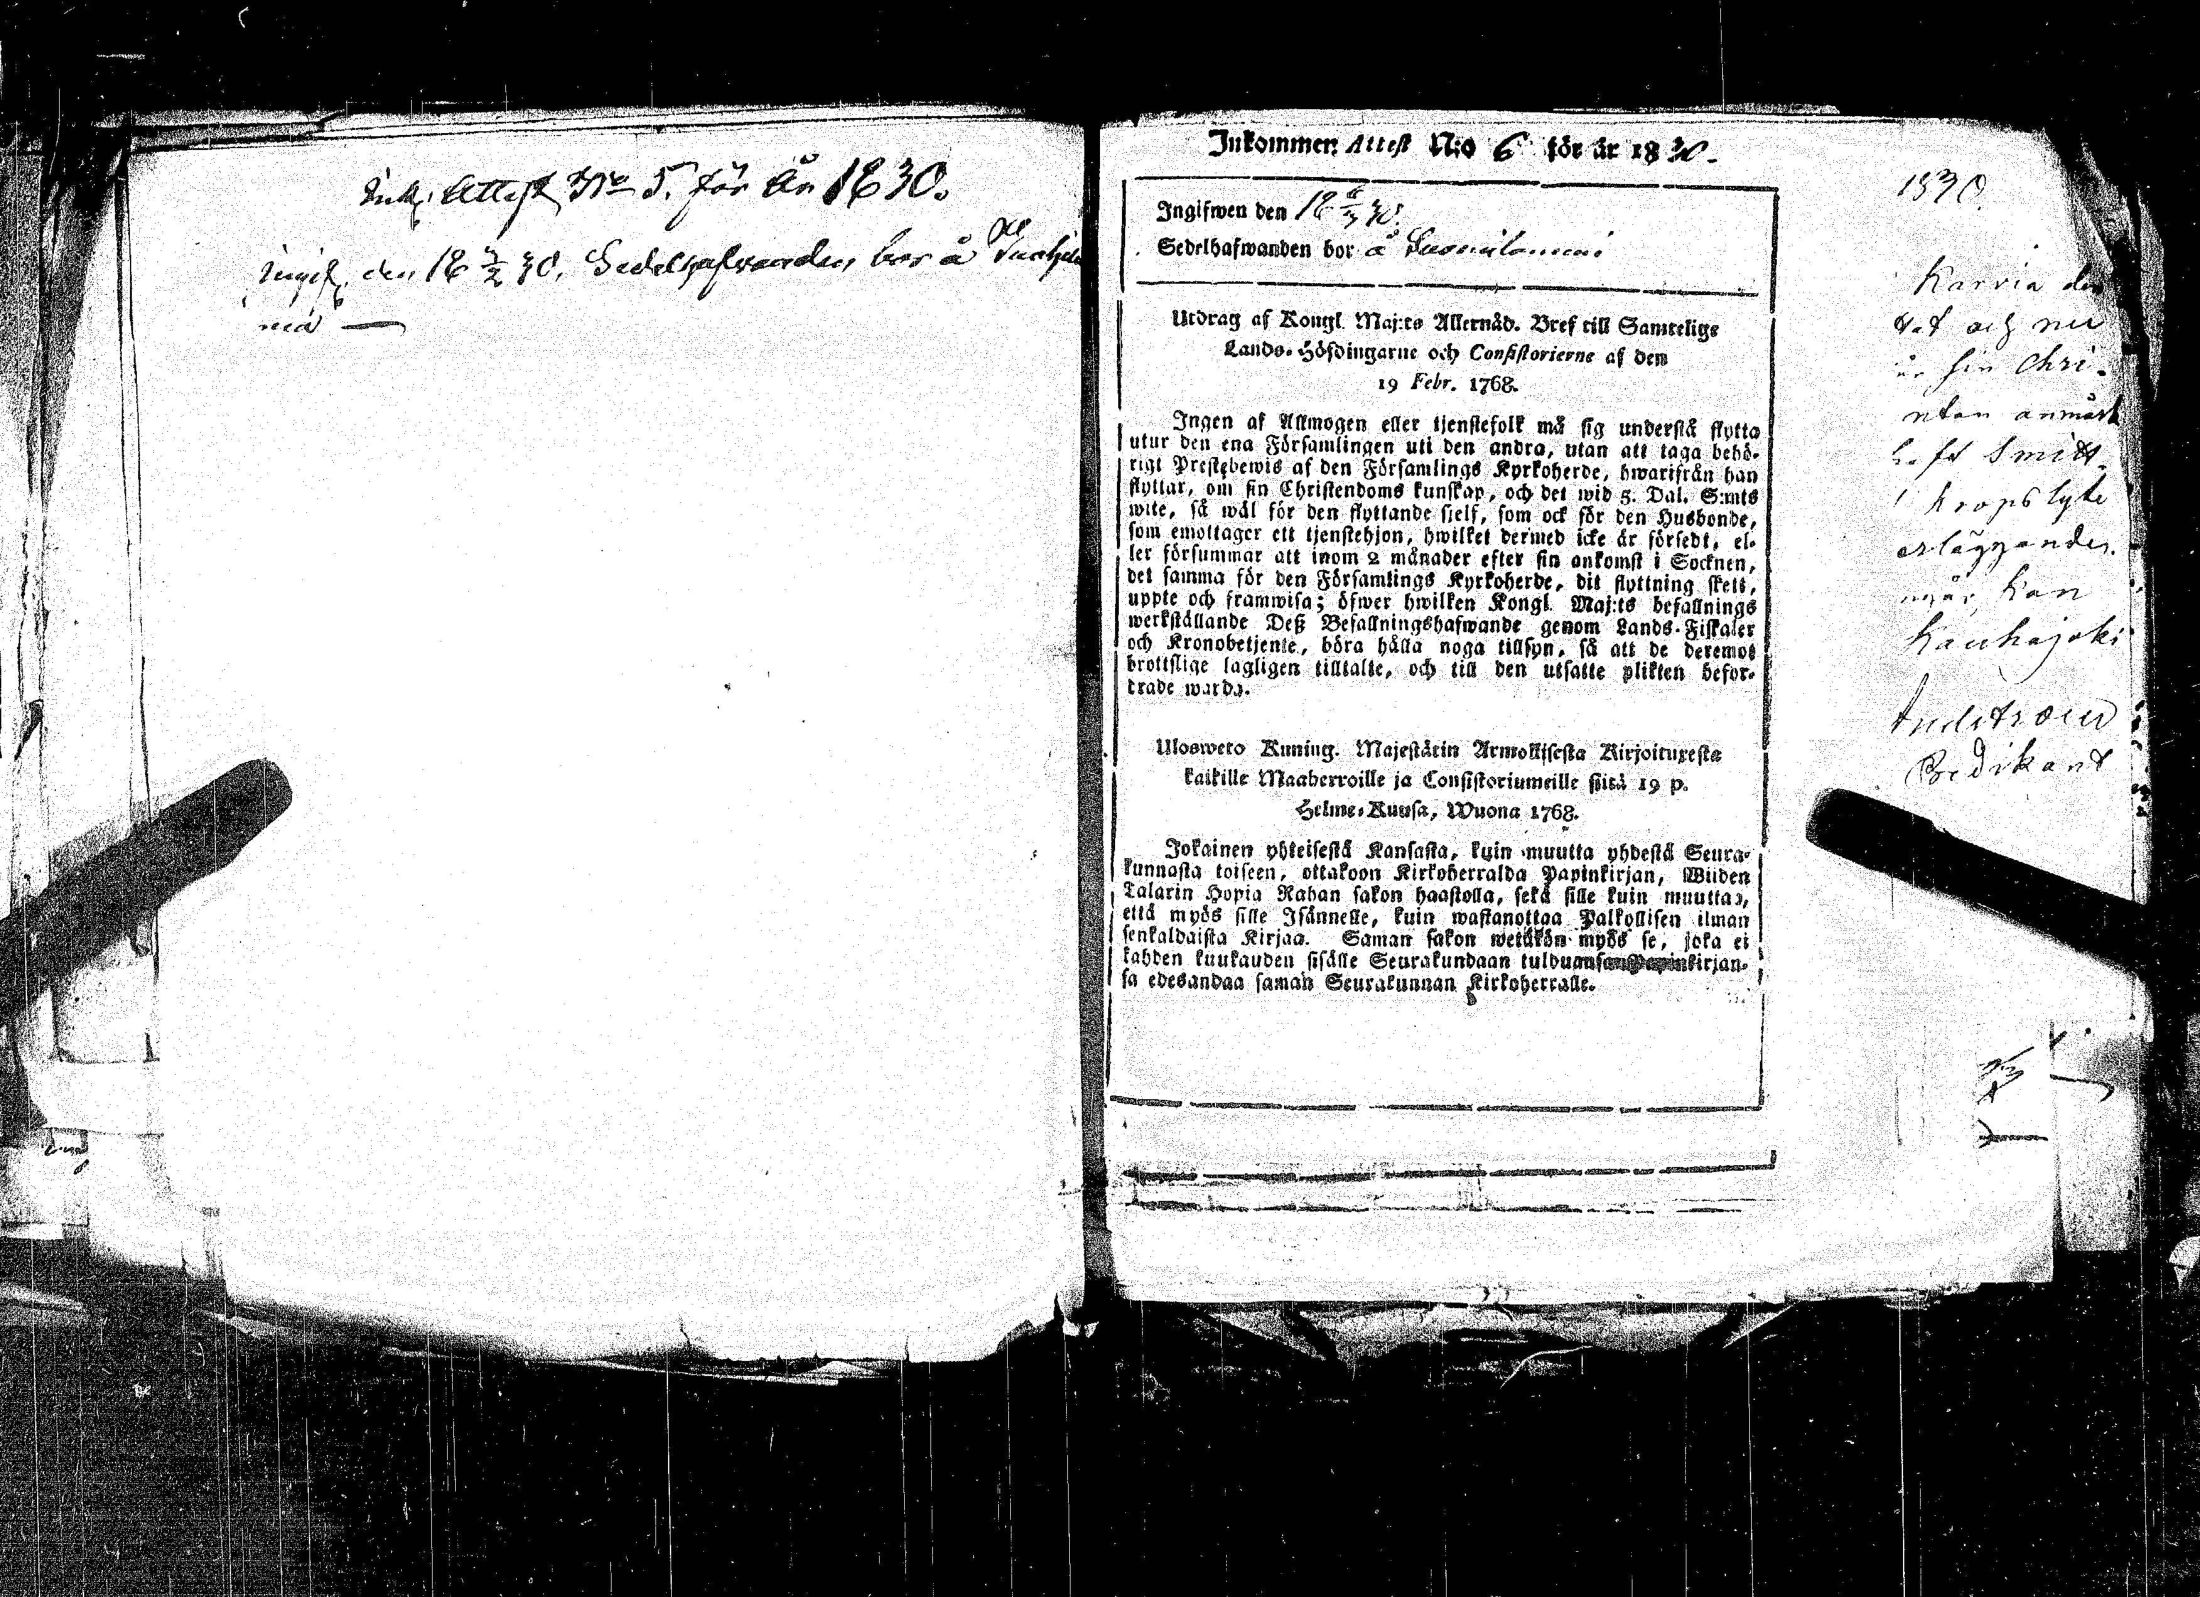 Ink. Attest No 5. för År 1830.
Ingif. den 18 5/2 30. Sedelhafwanden bor å
Inkommen Attest N:o 6 för år 1830.
Ingifwen den 18 6/3 30.
Sedelhafwanden bor å
Utdrag af Kongl. Maj:ts Allernåd. Bref till Samtelige
Lands-Höfdingarne och Consistorierne af den
19 Febr. 1768.
Ingen af Allmogen eller tjenstefolk må sig understå flytta
utur den ena Församlingen uti den andra, utan att taga behö-
rigt Prestebewis af den Församlings Kyrkoherde, hwarifrån han
flyttar, om sin Christendoms kunskap, och det wid 5. Dal. S:mts
wite, så wäl för den flyttande sjelf, som ock för den Husbonde,
som emottager ett tjenstehjon, hwilket dermed icke är försedt, el-
ler försummar att inom 2 månader efter sin ankomst i Socknen,
det samma för den Församlings Kyrkoherde, dit flyttning skett,
uppte och framwisa; öfwer hwilken Kongl. Maj:ts befallnings
werkställande Deß Befallningshafwande genom Lands-Fiskaler
och Kronobetjente, böra hålla noga tillsyn, så att de deremot
brottslige lagligen tilltalte, och till den utsatte plikten befor-
drade warda.
Ulosweto Kuning. Majestätin Armollisesta Kirjoituxesta
kaikille Maaherroille ja Consistoriumeille siitä 19 p.
Helme-Kuusa, Wuona 1768.
Jokainen yhteisestä Kansasta, kuin muutta yhdestä Seura-
kunnasta toiseen, ottakoon Kirkoherralda Papinkirjan, Wiiden
Talarin Hopia Rahan sakon haastolla, sekä sille kuin muuttaa,
että myös sille Isännelle, kuin wastanottaa Palkollisen ilman
senkaldaista Kirjaa. Saman sakon wetäkön myös se, joka ei
kahden kuukauden sisälle Seurakundaan tulduansa Papinkirjan-
sa edesandaa saman Seurakunnan Kirkoherralle.
1830.
Karvia den
och nu
sin Chri-
utan anmärk
haft Smitt-
kropslyte
erläggandes.
kan
Kauhajoki
Predikant